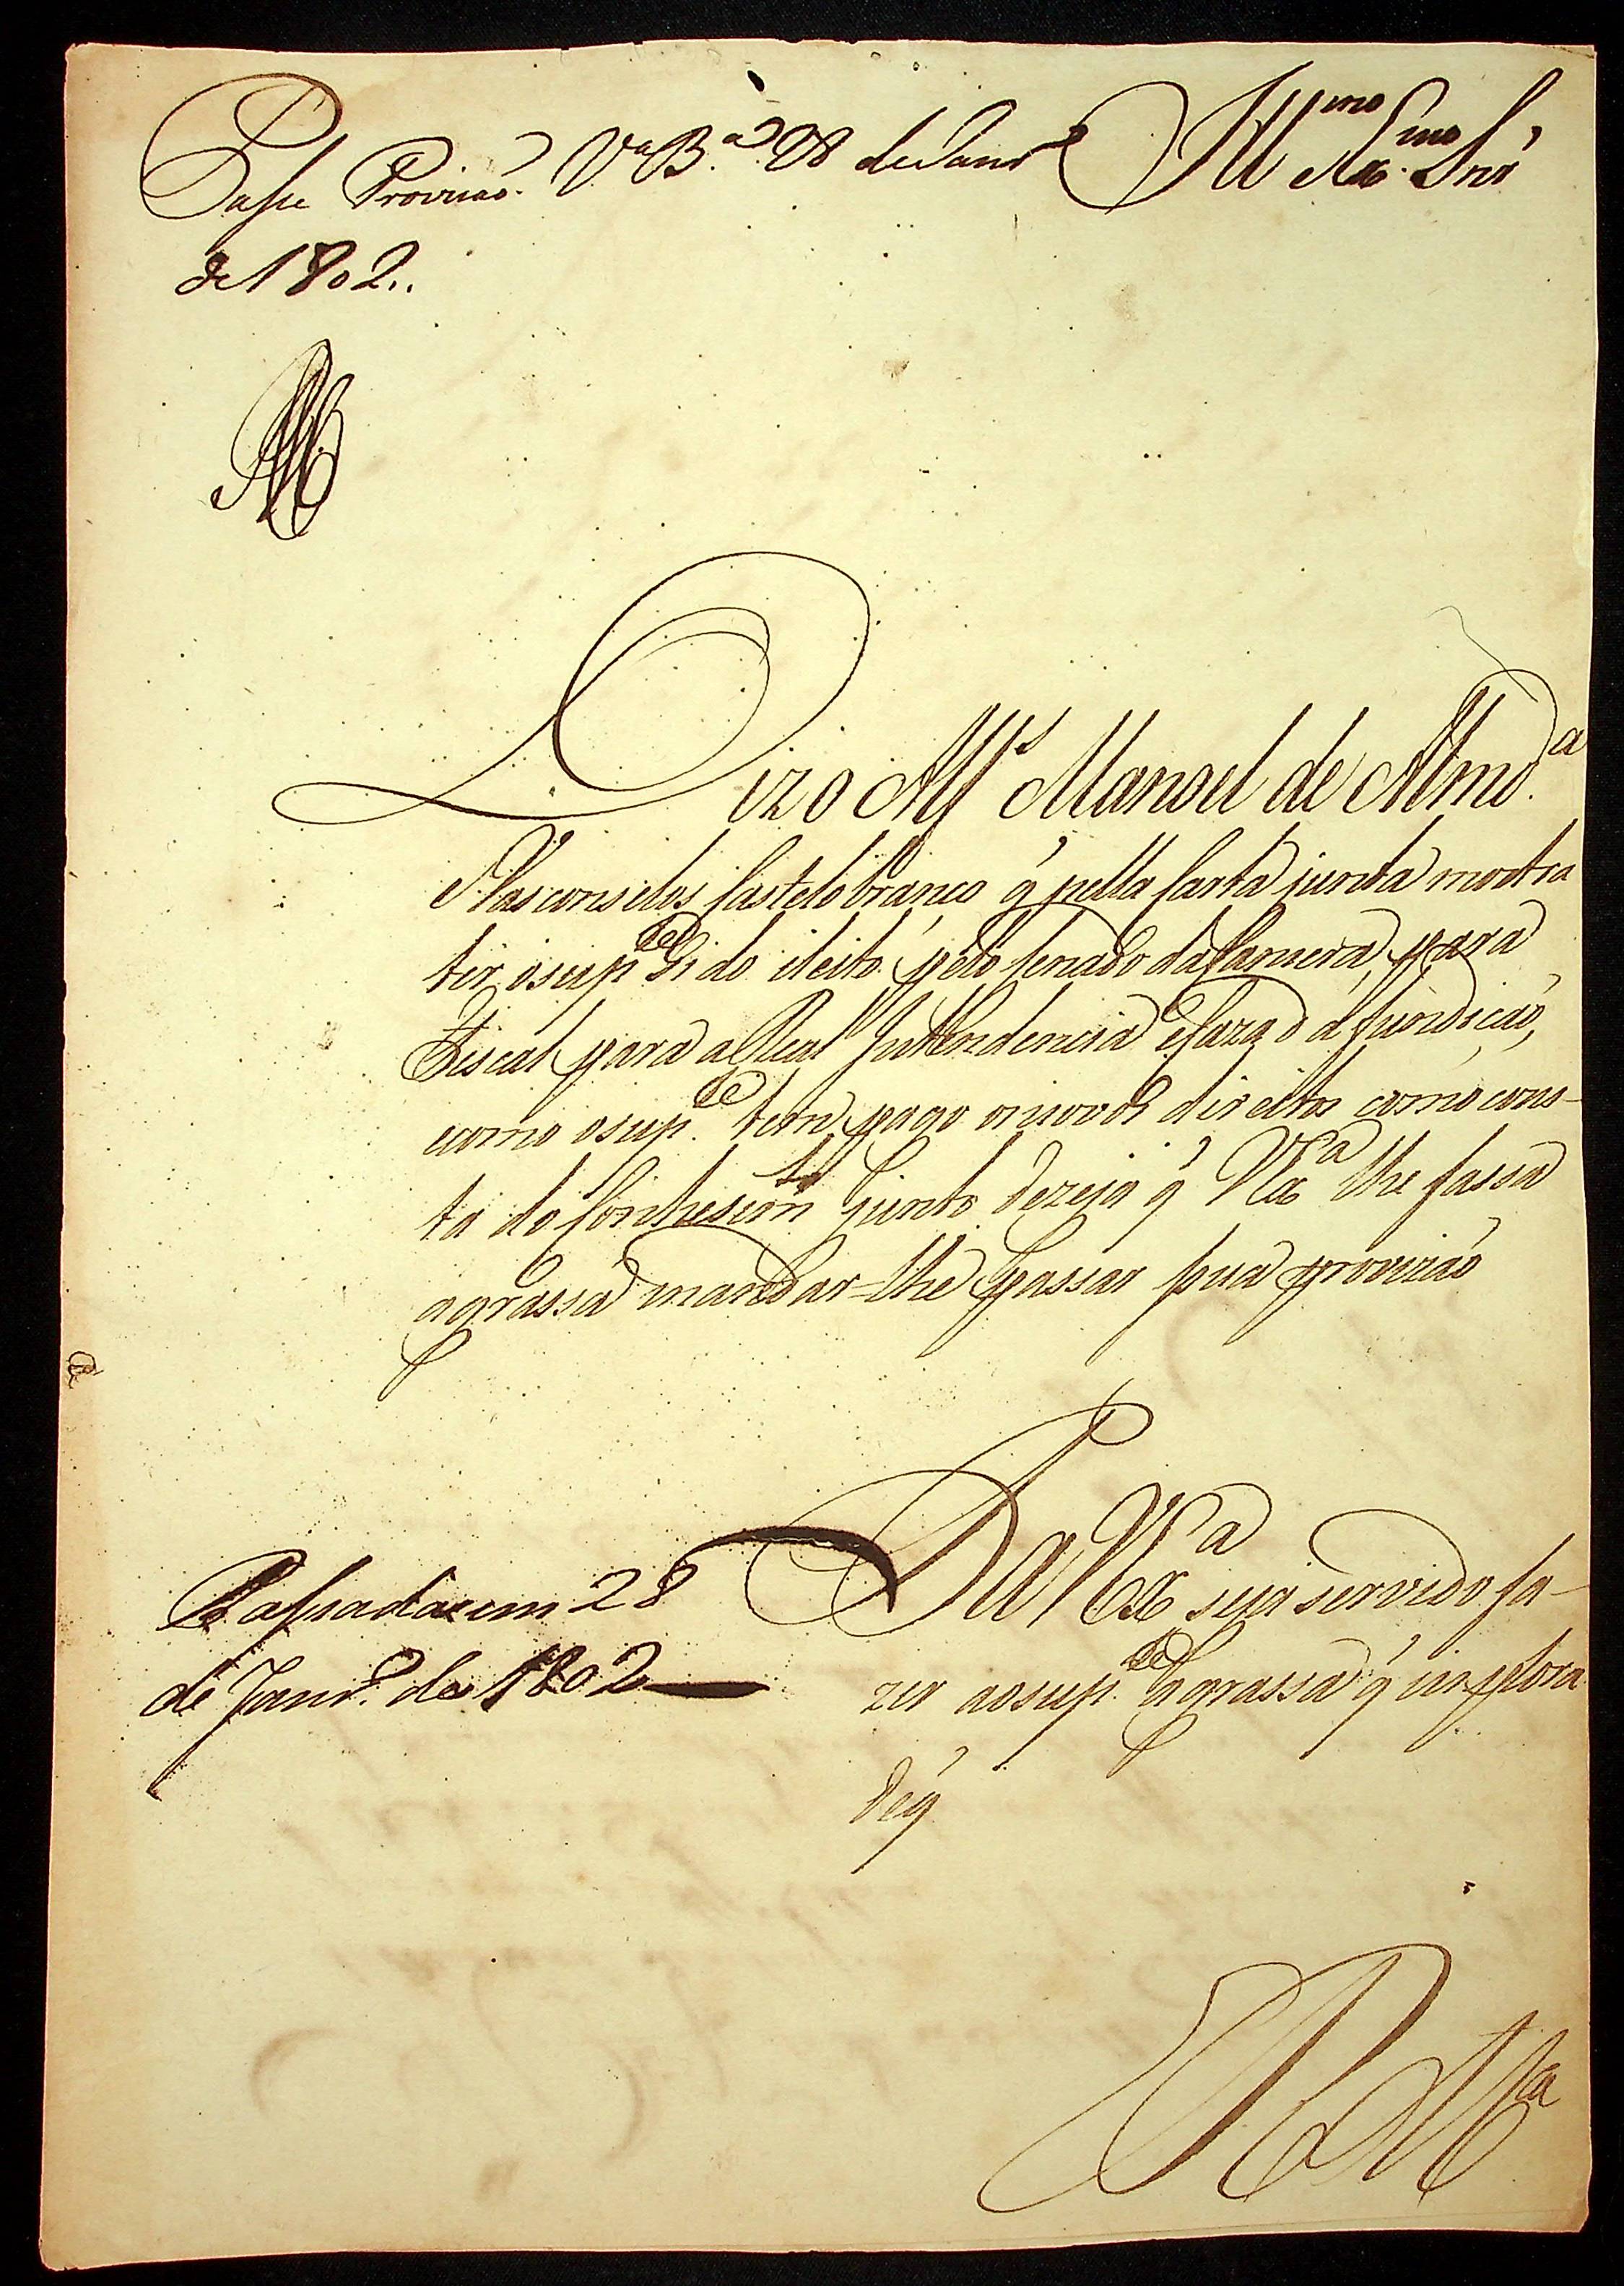 Passe Provizaõ. V.ª B.ª 28 de Janrº
de 1802..
Illmo Exmo Snr
Diz o Alfs Manoel de Almdª
Vasconselos Castelobranco q̃ pella Carta junta mostra
ter o supte Sido eleito pelo senado da Camera para
Fiscal para a Real Intendencia e caza da fundicaõ,
e como o supte tem pago os novos direitos como cons-
ta do Conhesimto junto dezeja q̃ V Exª lhe fassa
a grassa mandar-lhe passar sua provizaõ
P a V Exª seja servido fa-
zer ao supte a grassa q̃ inplora
deq̃
Passada em 28
de Janrº de 1802
E R Mce